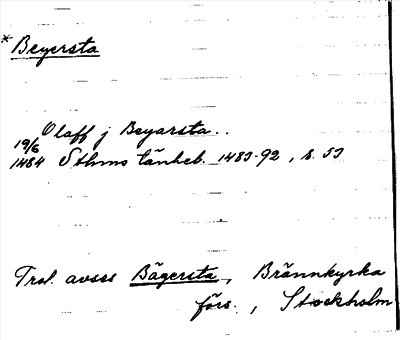 * Beyersta
Olaff j Beyarsta..
19/6 1484 Sthms tänkeb. 1483-92, s. 53
Trol. avses Bägersta, Brännkyrka
förs., Stockholm